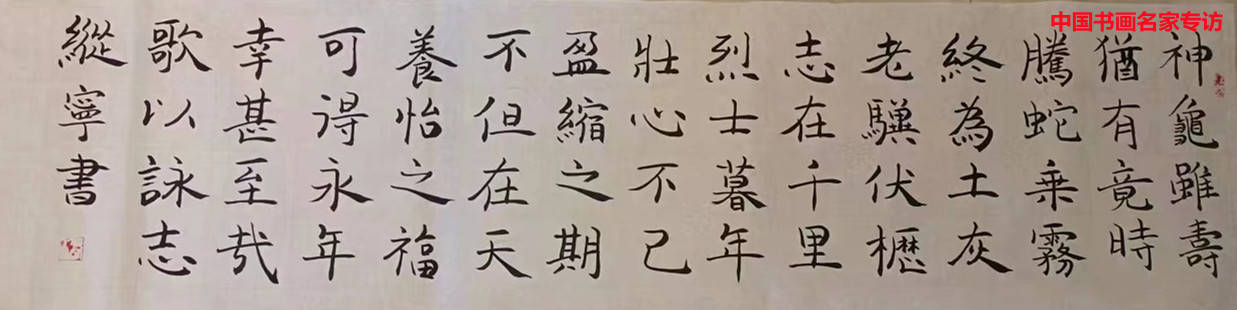 中国书画名家专访
神龜雖壽
猶有竟時
騰蛇乘霧
終為土灰
老驥伏櫪
志在千里
烈士暮年
壯心不已
盈縮之期
不但在天
養怡之福
可得永年
幸甚至哉
歌以詠志
縱寧書